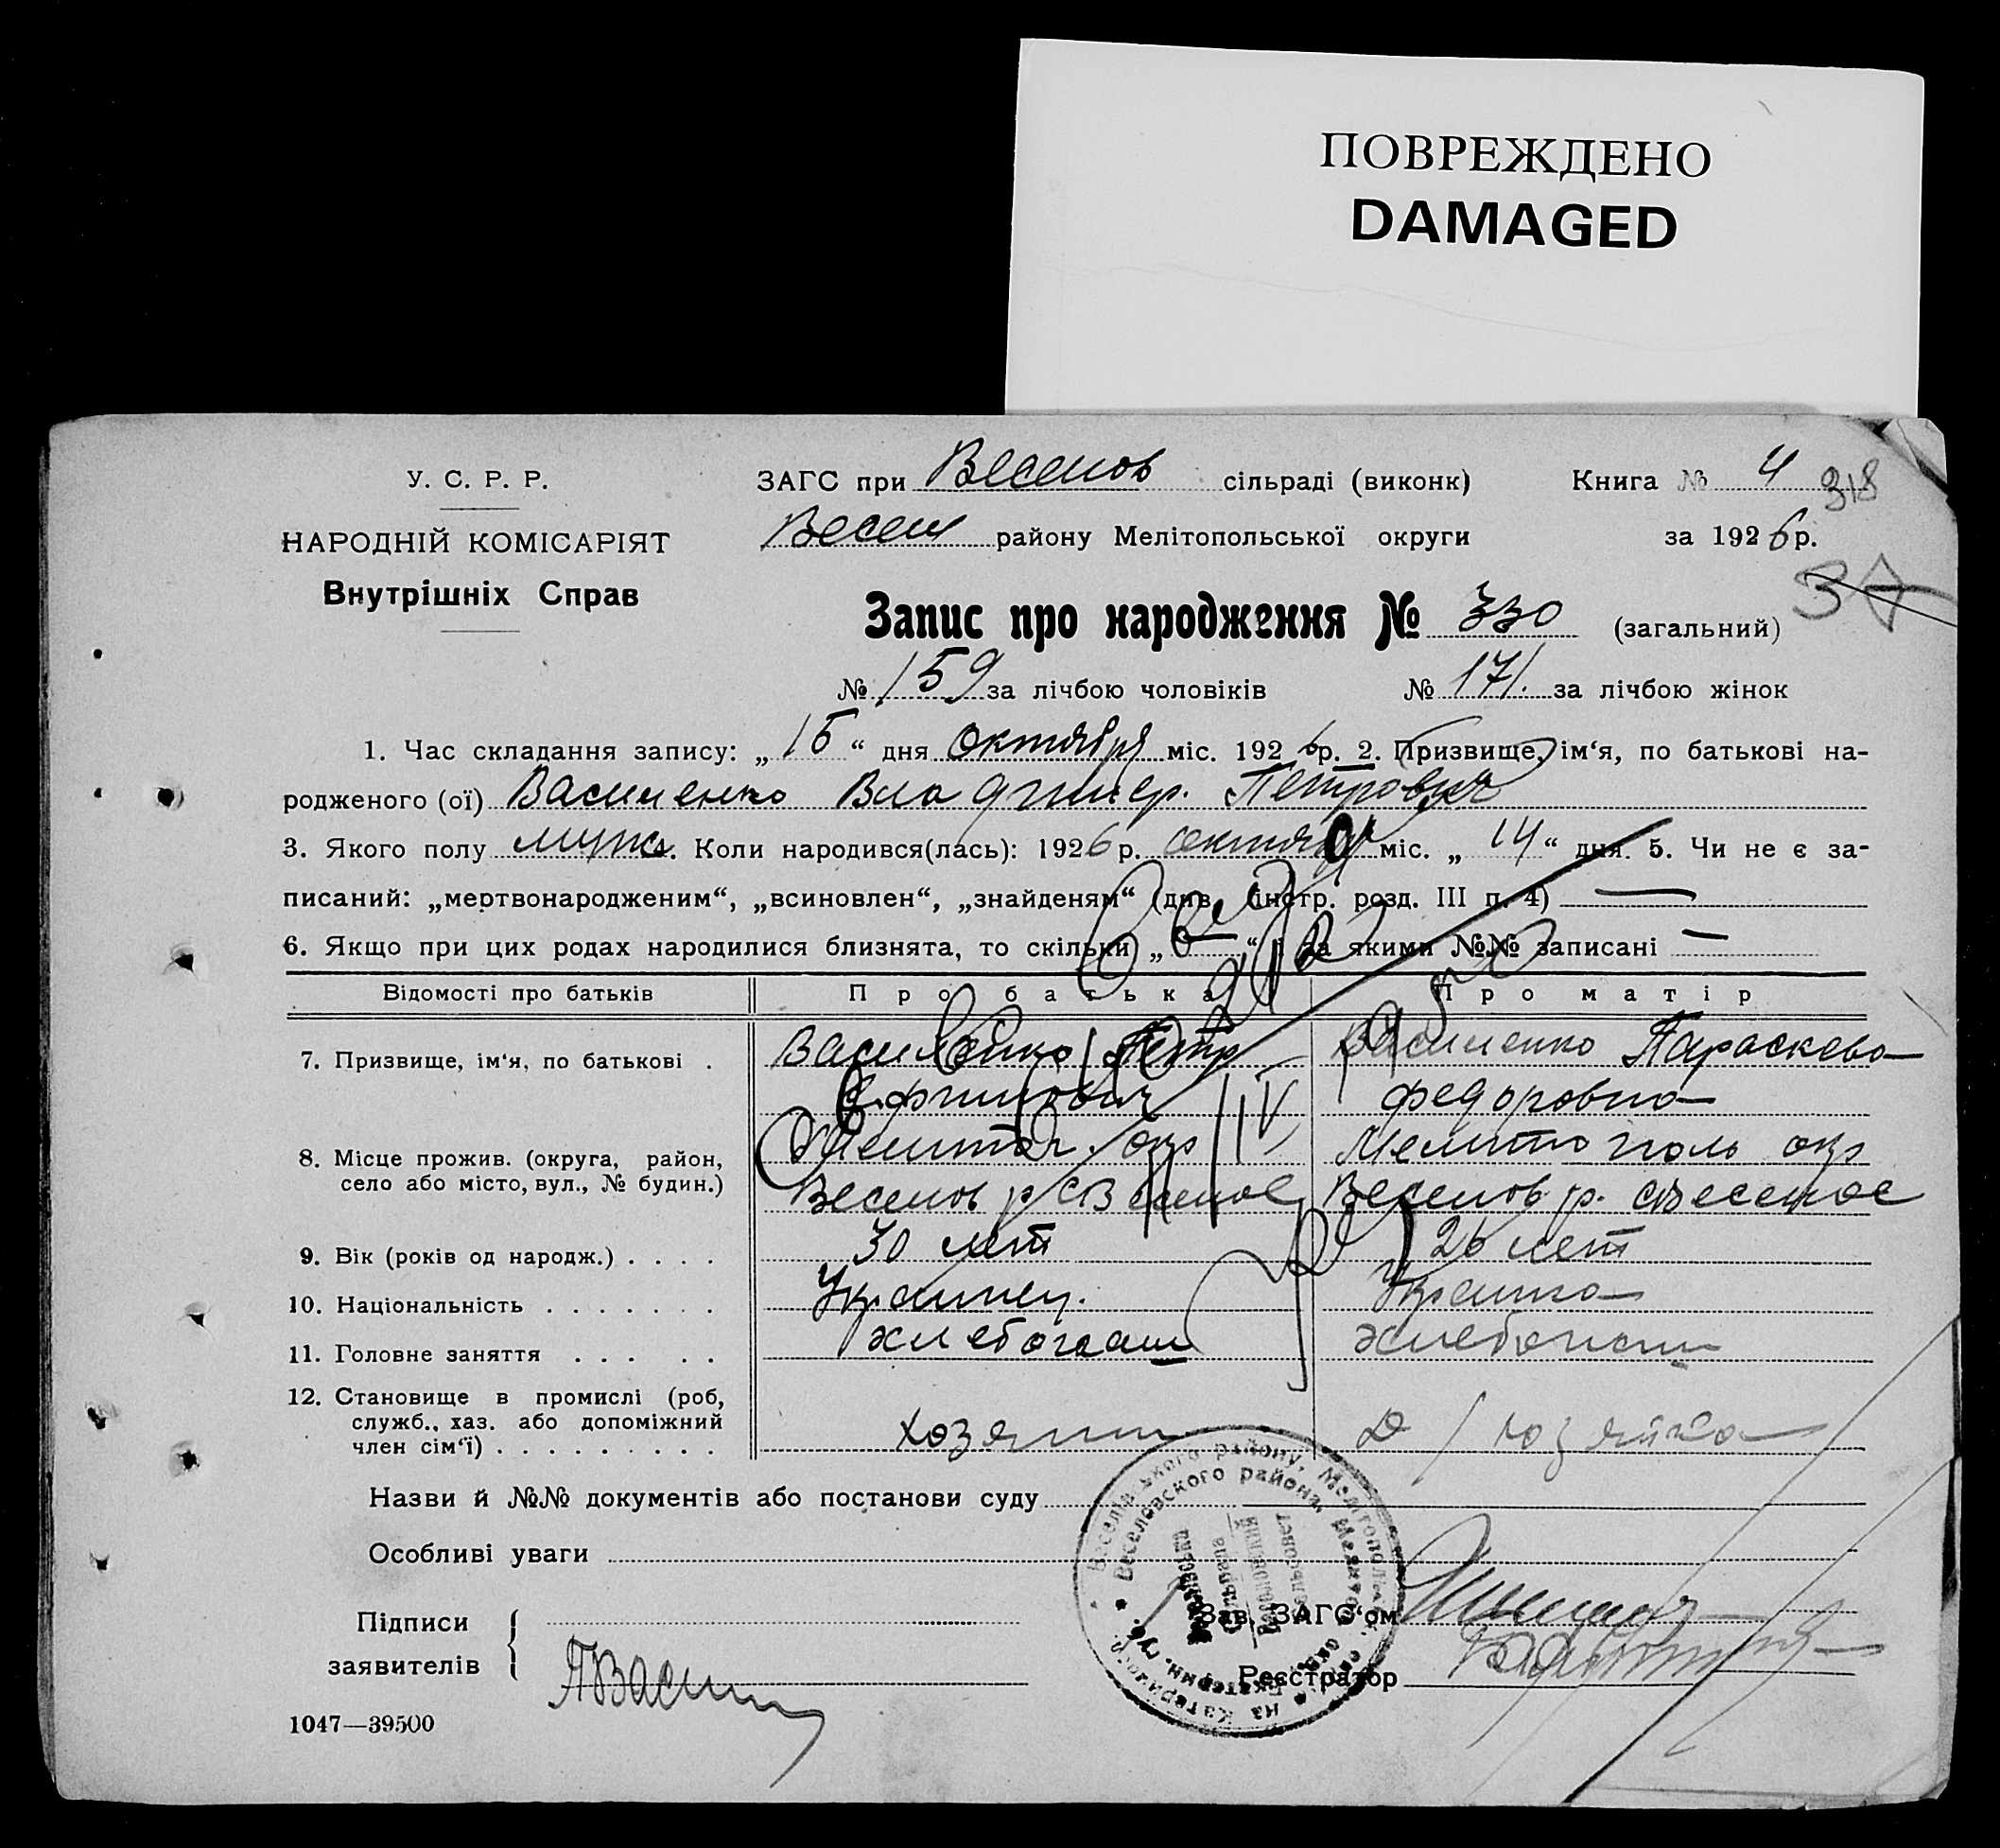 ПОВРЕЖДЕНО
DAMAGED
У. С. Р. Р.
НАРОДНІЙ КОМІСАРІЯТ
Внутрішніх Справ
ЗАГС при Веселов сільраді (виконк) Книга № 4 318
Весел району Мелітопольської округи за 1926 р.
Запис про народження № 330 (загальний)
№ 159 за лічбою чоловіків № 171. за лічбою жінок
1. Час складання запису: „ 15 “ дня октября міс. 1926 р. 2. Призвище, ім‘я, по батькові на-
родженого (ої) Василенко Владимер. Петрович
3. Якого полу муж. Коли народився(лась): 1926 р. октября міс. „ 14 “ дня. 5. Чи не є за-
писаний: „мертвонародженим“, „всиновлен“, „знайденям“ (див. інстр. розд. III п. 4) —
6. Якщо при цих родах народилися близнята, то скільки „ — “ і за якими №№ записані —
Відомості про батьків Про батька Про матір
7. Призвище, ім‘я, по батькові . Василенко Петр Василенко Параскева
Ефимович Федоровна
8. Місце прожив. (округа, район, Мелитоп. окр Мелитополь окр
село або місто, вул., № будин.) Веселов р. с Веселое Веселов. р. с Веселое
9. Вік (років од народж.) . . . . 30 лет 26 лет
10. Національність . . . . . . . Украинец. Украинка
11. Головне заняття . . . . . хлебопаш хлебопаш
12. Становище в промислі (роб,
служб., хаз. або допоміжний
член сім‘ї) . . . . . . . . . хозяин Д/хозяйка
Назви й №№ документів або постанови суду
Особливі уваги
Підписи
заявителів
ПВасил
Зав. ЗАГС‘ом
Реєстратор
1047—39500